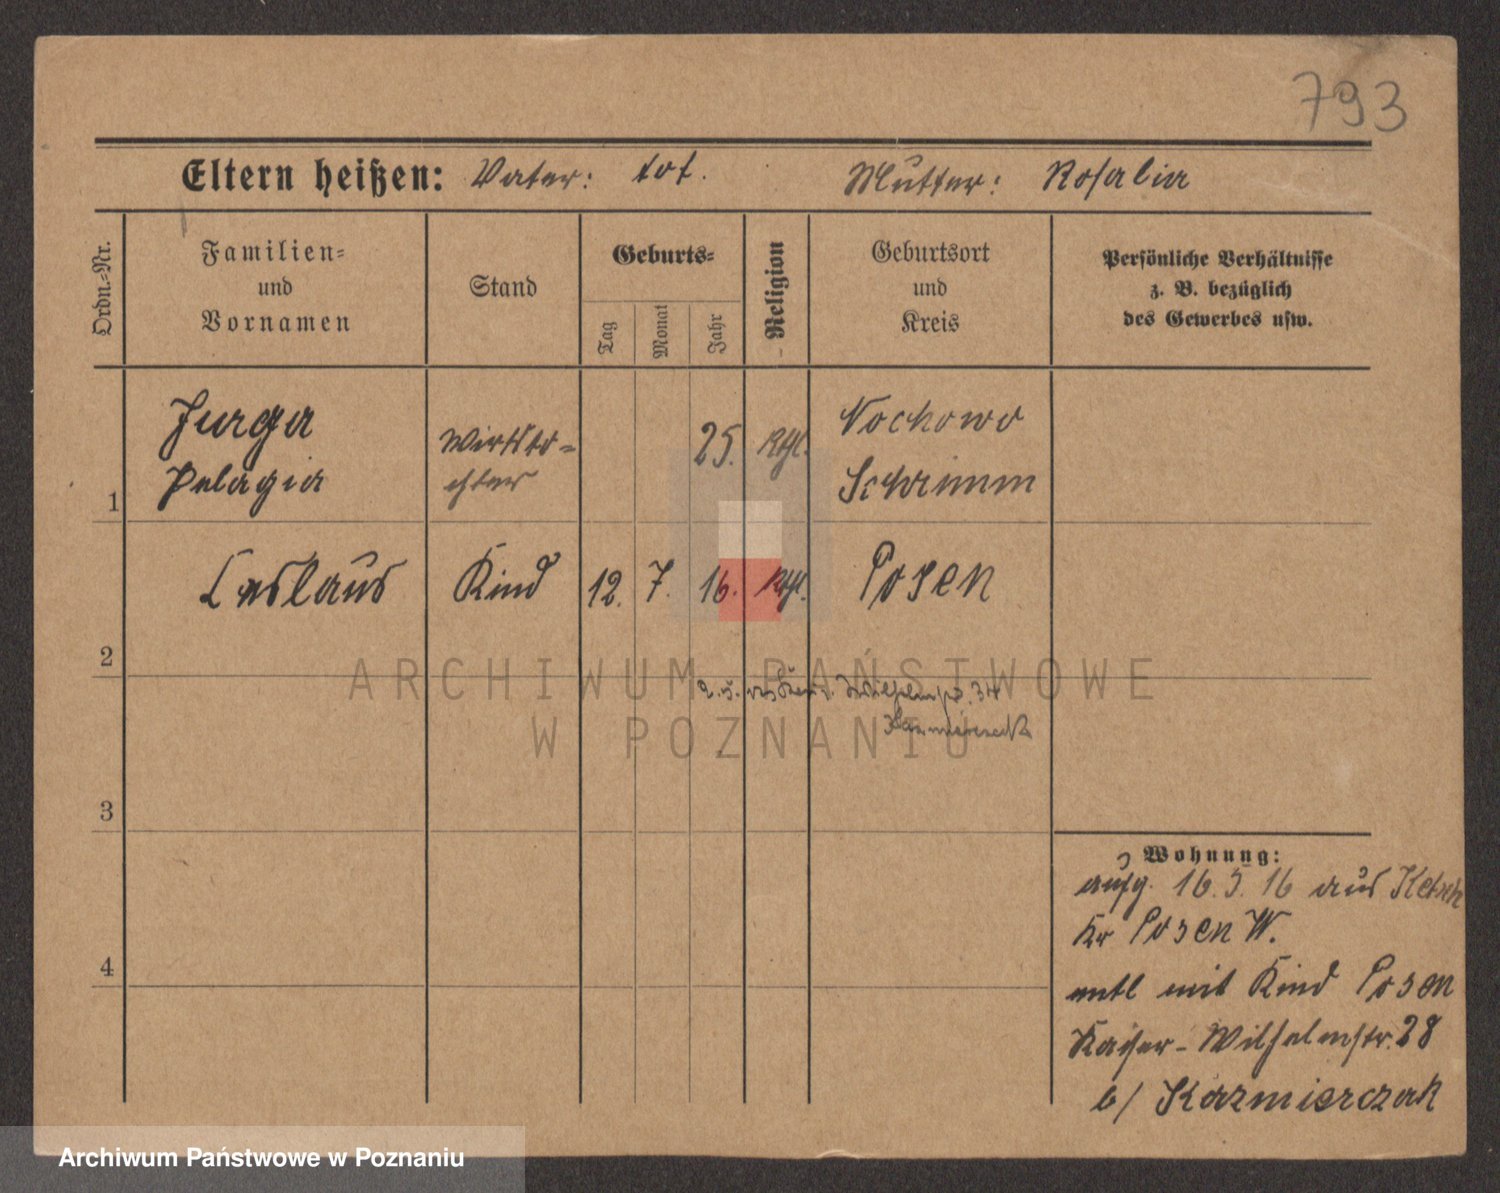 793
Eltern heißen: Vater: tot. Mutter: Rosalia
Ordn.-Nr.
Familien-
und
Vornamen
Stand
Geburts-
Tag
Monat
Jahr
Religion
Geburtsort
und
Kreis
Persönliche Verhältnisse
z. B. bezüglich
des Gewerbes usw.
Jurga
Pelagia
Wirtsto-
chter
25.
Kthl.
Nochowo
Schrimm
1
Ceslaus Kind 12. 7. 16. Kthl. Posen
2
ARCHIWUM PAŃSTWOWE
W POZNANIU
Wilhelmstr. 34
Kazmierczak
3
Wohnung:
aufg. 16.5.16 aus
Kr Posen W.
entl mit Kind Posen
Kaiser-Wilhelmstr. 28
b/ Kazmierczak
4
Archiwum Państwowe w Poznaniu